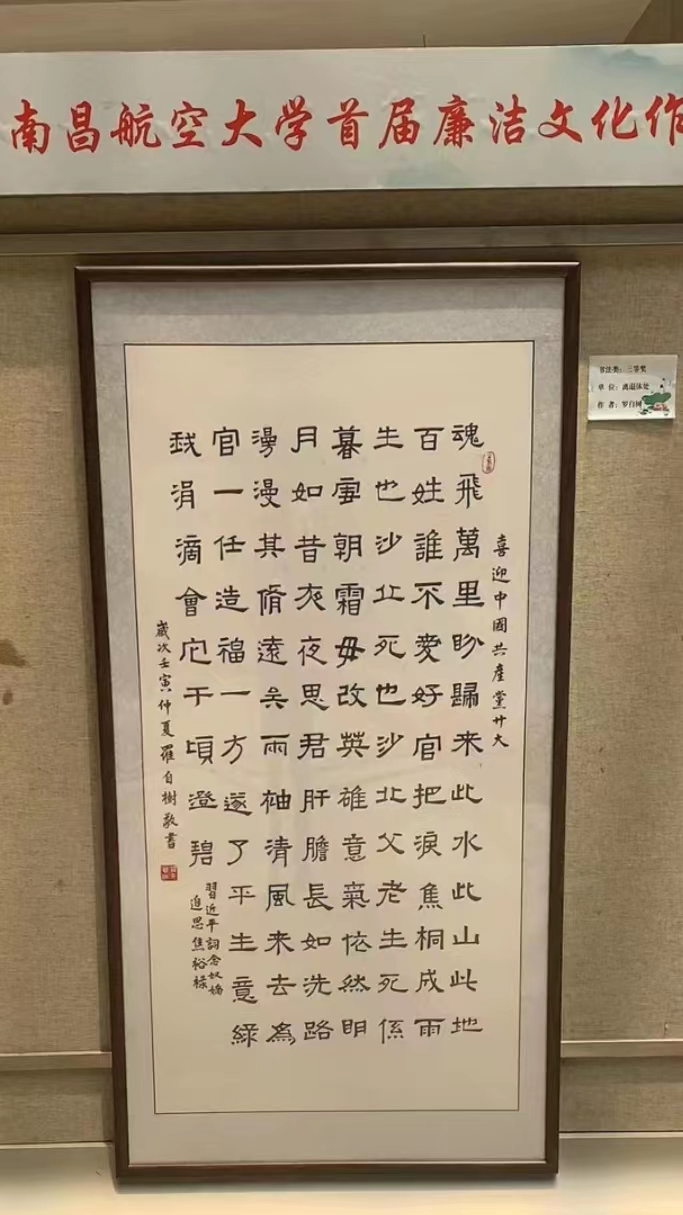 南昌航空大学首届廉洁文化作
喜迎中國共產黨廿大
魂飛萬里盼歸來此水此山此地
百姓誰不愛好官把淚焦桐成雨
生也沙丘死也沙丘父老生死係
暮雪朝霜毋改英雄意氣依然明
月如昔夜夜思君肝膽長如洗路
漫漫其脩遠矣兩袖清風來去為
官一任造福一方遂了平生意綠
我涓滴會它千頃澄碧
習近平詞念奴嬌
追思焦裕祿
歲次壬寅仲夏羅自樹敬書
书法类：三等奖
单 位：离退休处
作 者：罗自树